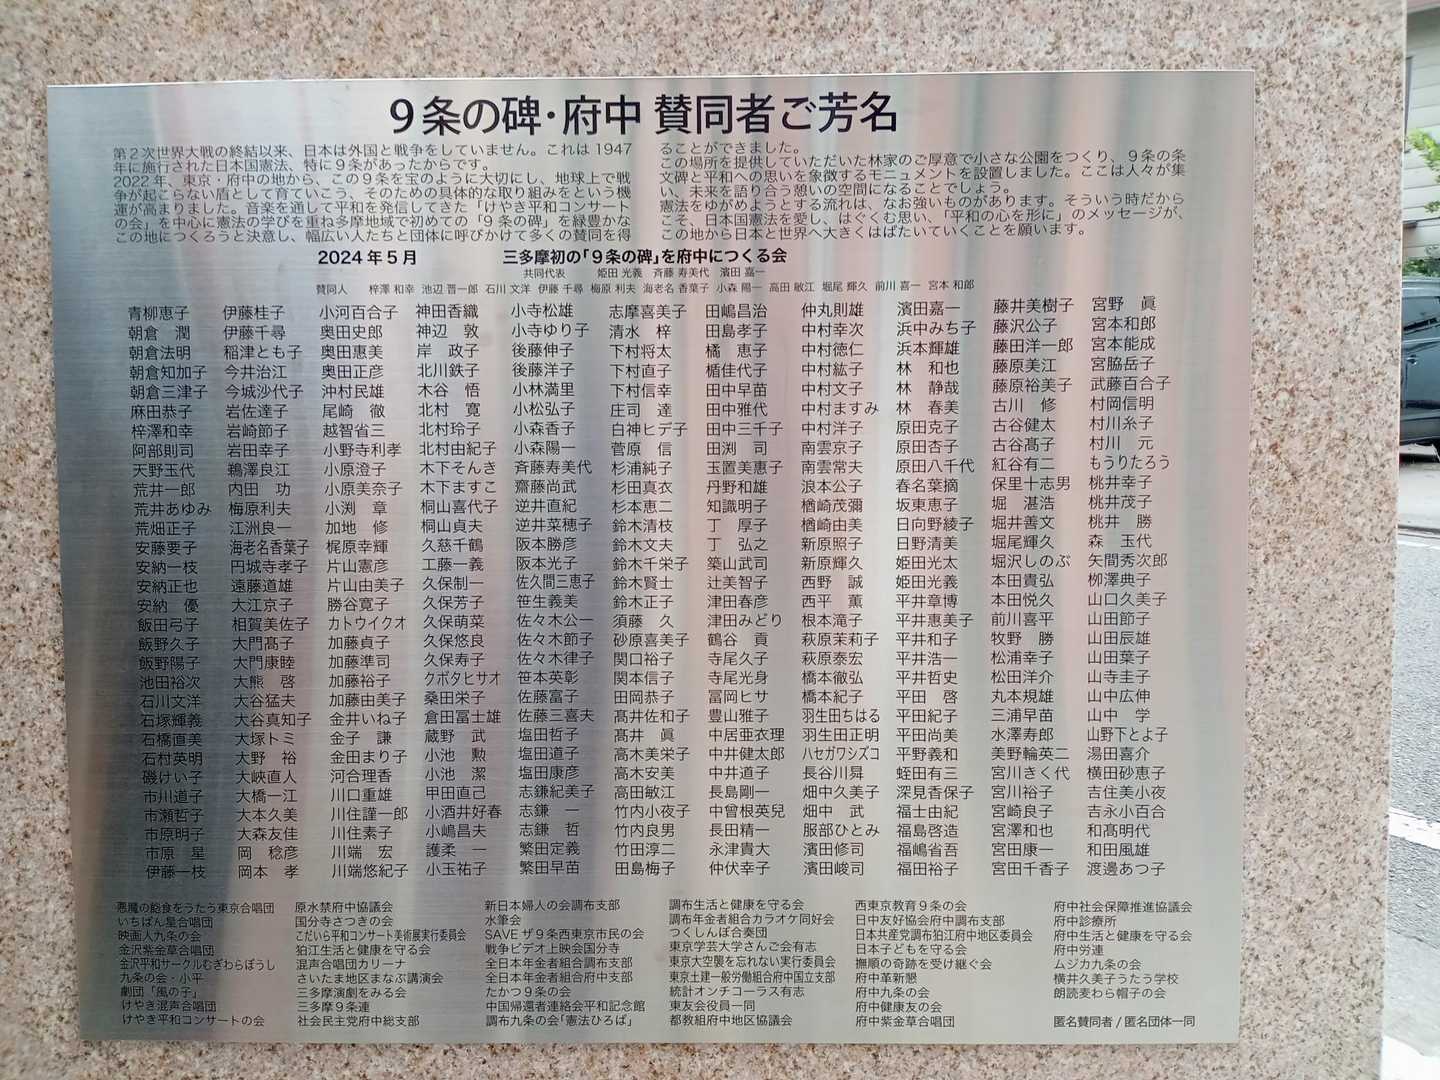 9条の碑・府中 賛同者ご芳名
第2次世界大戦の終結以来、日本は外国と戦争をしていません。これは1947
年に施行された日本国憲法、特に9条があったからです。
2022年、東京・府中の地から、この9条を宝のように大切にし、地球上で戦
争が起こらない盾として育ていこう、そのための具体的な取り組みをという機
運が高まりました。音楽を通して平和を発信してきた「けやき平和コンサート
の会」を中心に憲法の学びを重ね多摩地域で初めての「9条の碑」を緑豊かな
この地につくろうと決意し、幅広い人たちと団体に呼びかけて多くの賛同を得
ることができました。
この場所を提供していただいた林家のご厚意で小さな公園をつくり、9条の条
文碑と平和への思いを象徴するモニュメントを設置しました。ここは人々が集
い、未来を語り合う憩いの空間になることでしょう。
憲法をゆがめようとする流れは、なお強いものがあります。そういう時だから
こそ、日本国憲法を愛し、はぐくむ思い、「平和の心を形に」のメッセージが、
この地から日本と世界へ大きくはばたいていくことを願います。
2024年5月 三多摩初の「9条の碑」を府中につくる会
共同代表 姫田 光義 斉藤 寿美代 濱田 嘉一
賛同人 梓澤 和幸 池辺 晋一郎 石川 文洋 伊藤 千尋 梅原 利夫 海老名 香葉子 小森 陽一 高田 敏江 堀尾 輝久 前川 喜一 宮本 和郎
青柳恵子
朝倉 潤
朝倉法明
朝倉知加子
朝倉三津子
麻田恭子
梓澤和幸
阿部則司
天野玉代
荒井一郎
荒井あゆみ
荒畑正子
安藤要子
安納一枝
安納正也
安納 優
飯田弓子
飯野久子
飯野陽子
池田裕次
石川文洋
石塚輝義
石橋直美
石村英明
磯けい子
市川道子
市瀬哲子
市原明子
市原 星
伊藤一枝
伊藤桂子
伊藤千尋
稲津とも子
今井治江
今城沙代子
岩佐達子
岩崎節子
岩田幸子
鵜澤良江
内田 功
梅原利夫
江洲良一
海老名香葉子
円城寺孝子
遠藤道雄
大江京子
相賀美佐子
大門髙子
大門康睦
大熊 啓
大谷猛夫
大谷真知子
大塚トミ
大野 裕
大峽直人
大橋一江
大本久美
大森友佳
岡 稔彦
岡本 孝
小河百合子
奥田史郎
奥田惠美
奥田正彦
沖村民雄
尾崎 徹
越智省三
小野寺利孝
小原澄子
小原美奈子
小渕 章
加地 修
梶原幸輝
片山憲彦
片山由美子
勝谷寛子
カトウイクオ
加藤貞子
加藤準司
加藤裕子
加藤由美子
金井いね子
金子 謙
金田まり子
河合理香
川口重雄
川住謹一郎
川住素子
川端 宏
川端悠紀子
神田香織
神辺 敦
岸 政子
北川鉄子
木谷 悟
北村 寛
北村玲子
北村由紀子
木下そんき
木下ますこ
桐山喜代子
桐山貞夫
久慈千鶴
工藤一義
久保制一
久保芳子
久保萌菜
久保悠良
久保寿子
クボタヒサオ
桑田栄子
倉田冨士雄
蔵野 武
小池 勲
小池 潔
甲田直己
小酒井好春
小嶋昌夫
護柔 一
小玉祐子
小寺松雄
小寺ゆり子
後藤伸子
後藤洋子
小林満里
小松弘子
小森香子
小森陽一
斉藤寿美代
齋藤尚武
逆井直紀
逆井菜穂子
阪本勝彦
阪本光子
佐久間三恵子
笹生義美
佐々木公一
佐々木節子
佐々木律子
笹本英彰
佐藤富子
佐藤三喜夫
塩田哲子
塩田道子
塩田康彦
志鎌紀美子
志鎌 一
志鎌 哲
繁田定義
繁田早苗
志摩喜美子
清水 梓
下村将太
下村直子
下村信幸
庄司 達
白神ヒデ子
菅原 信
杉浦純子
杉田真衣
杉本恵二
鈴木清枝
鈴木文夫
鈴木千栄子
鈴木賢士
鈴木正子
須藤 久
砂原喜美子
関口裕子
関本信子
田岡恭子
高井佐和子
髙井 眞
高木美栄子
高木安美
高田敏江
竹内小夜子
竹内良男
竹田淳二
田島梅子
田嶋昌治
田島孝子
橘 恵子
楯佳代子
田中早苗
田中雅代
田中三千子
田渕 司
玉置美恵子
丹野和雄
知識明子
丁 厚子
丁 弘之
築山武司
辻美智子
津田春彦
津田みどり
鶴谷 貢
寺尾久子
寺尾光身
冨岡ヒサ
豊山雅子
中居亜衣理
中井健太郎
中井道子
長島剛一
中曾根英兒
長田精一
永津貴大
仲伏幸子
仲丸則雄
中村幸次
中村徳仁
中村紘子
中村文子
中村ますみ
中村洋子
南雲京子
南雲常夫
浪本公子
楢崎茂彌
楢崎由美
新原照子
新原輝久
西野 誠
西平 薫
根本滝子
萩原茉莉子
萩原泰宏
橋本徹弘
橋本紀子
羽生田ちはる
羽生田正明
ハセガワシズコ
長谷川曻
畑中久美子
畑中 武
服部ひとみ
濱田修司
濱田峻司
濱田嘉一
浜中みち子
浜本輝雄
林 和也
林 静哉
林 春美
原田克子
原田杏子
原田八千代
春名葉摘
坂東恵子
日向野綾子
日野清美
姫田光太
姫田光義
平井章博
平井惠美子
平井和子
平井浩一
平井哲史
平田 啓
平田紀子
平田尚美
平野義和
蛭田有三
深見香保子
福士由紀
福島啓造
福嶋省吾
福田裕子
藤井美樹子
藤沢公子
藤田洋一郎
藤原美江
藤原裕美子
古川 修
古谷健太
古谷髙子
紅谷有二
保里十志男
堀 湛浩
堀井善文
堀尾輝久
堀沢しのぶ
本田貴弘
本田悦久
前川喜平
牧野 勝
松浦幸子
松田洋介
丸本規雄
三浦早苗
水澤寿郎
美野輪英二
宮川きく代
宮川裕子
宮崎良子
宮澤和也
宮田康一
宮田千香子
宮野 眞
宮本和郎
宮本能成
宮脇岳子
武藤百合子
村岡信明
村川糸子
村川 元
もうりたろう
桃井幸子
桃井茂子
桃井 勝
森 玉代
矢間秀次郎
栁澤典子
山口久美子
山田節子
山田辰雄
山田葉子
山寺圭子
山中広伸
山中 学
山野下とよ子
湯田喜介
横田砂恵子
吉住美小夜
吉永小百合
和髙明代
和田風雄
渡邊あつ子
悪魔の飽食をうたう東京合唱団
いちばん星合唱団
映画人九条の会
金沢紫金草合唱団
金沢平和サークルむぎわらぼうし
九条の会・小平
劇団「風の子」
けやき混声合唱団
けやき平和コンサートの会
原水禁府中協議会
国分寺さつきの会
こだいら平和コンサート美術展実行委員会
狛江生活と健康を守る会
混声合唱団カリーナ
さいたま地区まなぶ講演会
三多摩演劇をみる会
三多摩9条連
社会民主党府中総支部
新日本婦人の会調布支部
水筆会
SAVE ザ9条西東京市民の会
戦争ビデオ上映会国分寺
全日本年金者組合調布支部
全日本年金者組合府中支部
たかつ9条の会
中国帰還者連絡会平和記念館
調布九条の会「憲法ひろば」
調布生活と健康を守る会
調布年金者組合カラオケ同好会
つくしんぼ合奏団
東京学芸大学さんご会有志
東京大空襲を忘れない実行委員会
東京土建一般労働組合府中国立支部
統計オンチコーラス有志
東友会役員一同
都教組府中地区協議会
西東京教育9条の会
日中友好協会府中調布支部
日本共産党調布狛江府中地区委員会
日本子どもを守る会
撫順の奇跡を受け継ぐ会
府中革新懇
府中九条の会
府中健康友の会
府中紫金草合唱団
府中社会保障推進協議会
府中診療所
府中生活と健康を守る会
府中労連
ムジカ九条の会
横井久美子うたう学校
朗読麦わら帽子の会
匿名賛同者/匿名団体一同